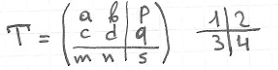 T = ( a b | p
c d | q
m n | s )
1 | 2
3 | 4